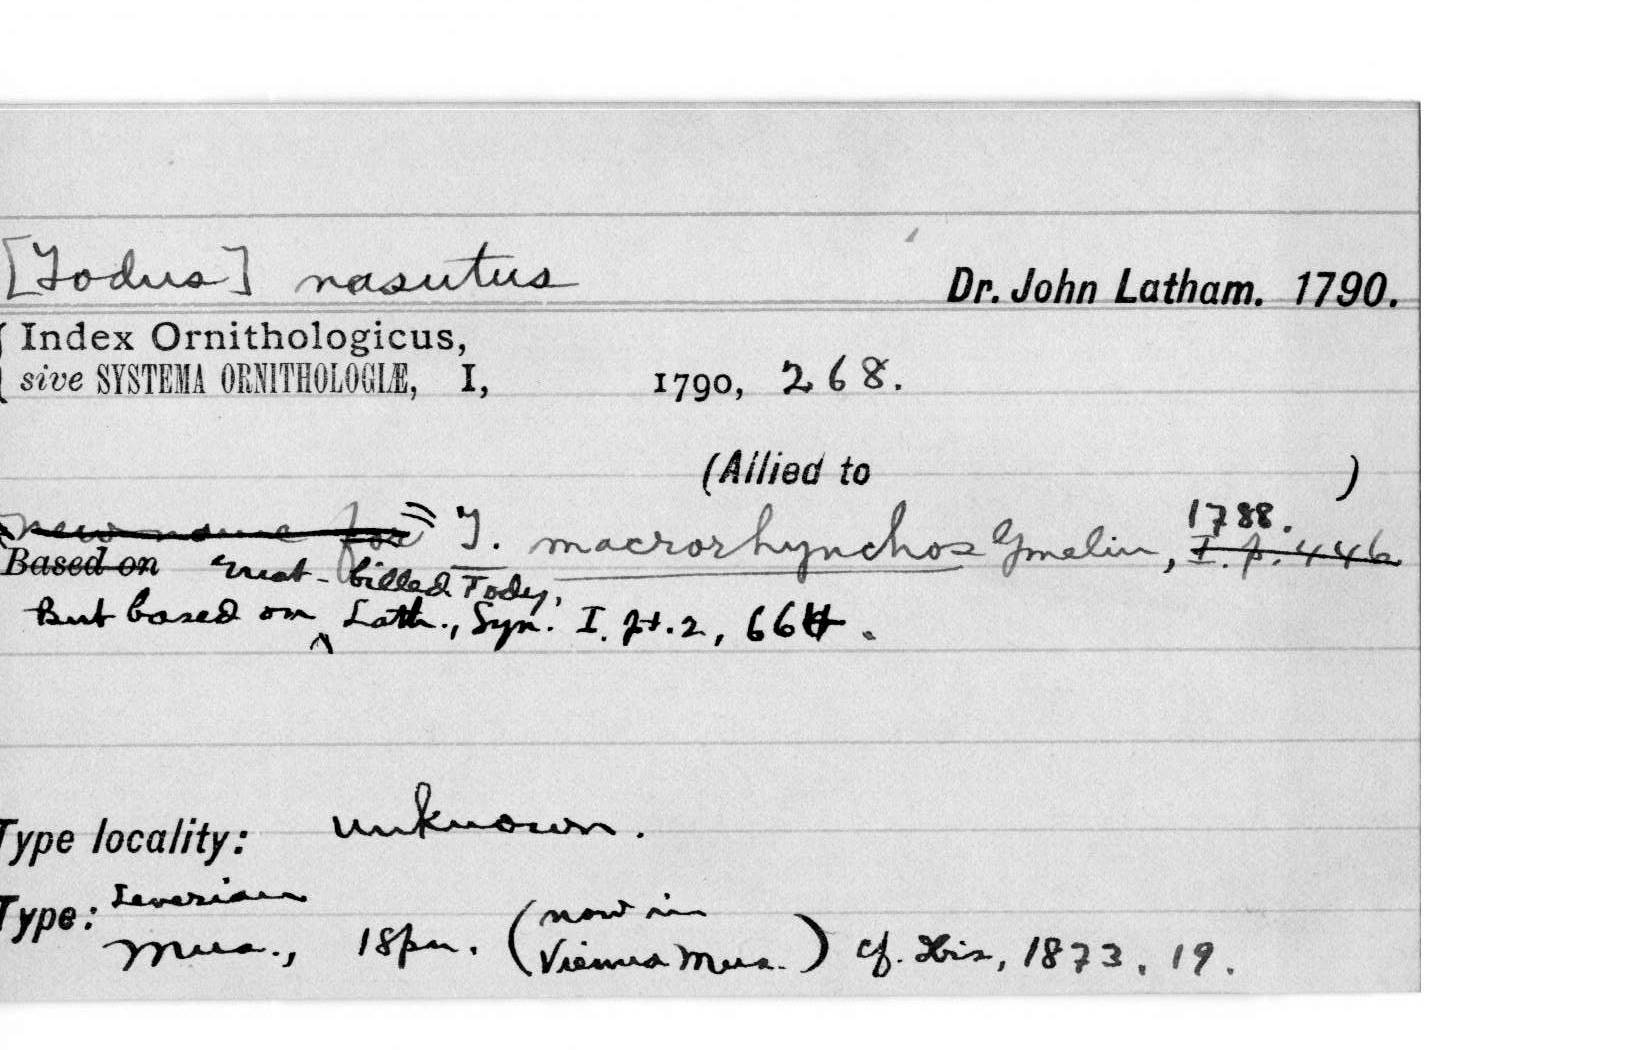 [Todus] nasutus
Dr. John Latham. 1790.
Index Ornithologicus,
sive SYSTEMA ORNITHOLOGIÆ, I, 1790, 268.
(Allied to )
new name for T. macrorhynchos Gmelin, 1788. I. p. 446
Based on Great-billed Tody,
But based on Lath., Syn. I. pt. 2, 664.
Type locality: unknown.
Type: Leverian
Mus., 1 spm. (now in
Vienna Mus.) cf. Ibis, 1873, 19.